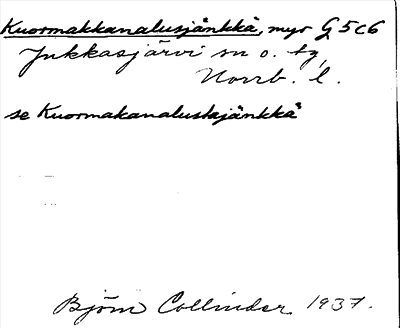 Kuormakkanalusjänkkä, myr G5c6
Jukkasjärvi sn o. tg,
Norrb. l.
se Kuormakanalustajänkkä
Björn Collinder 1937.